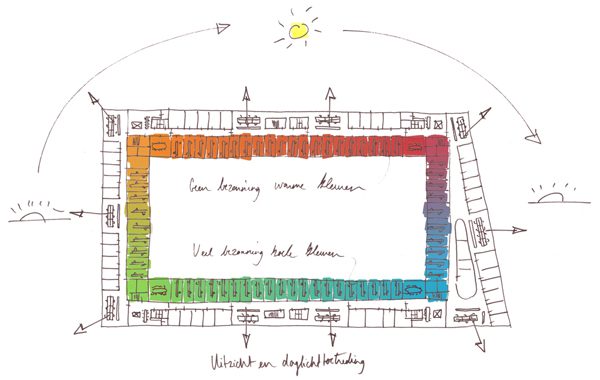 Geen bezonning warme kleuren
Veel bezonning koele kleuren
Uitzicht en daglichttoetreding